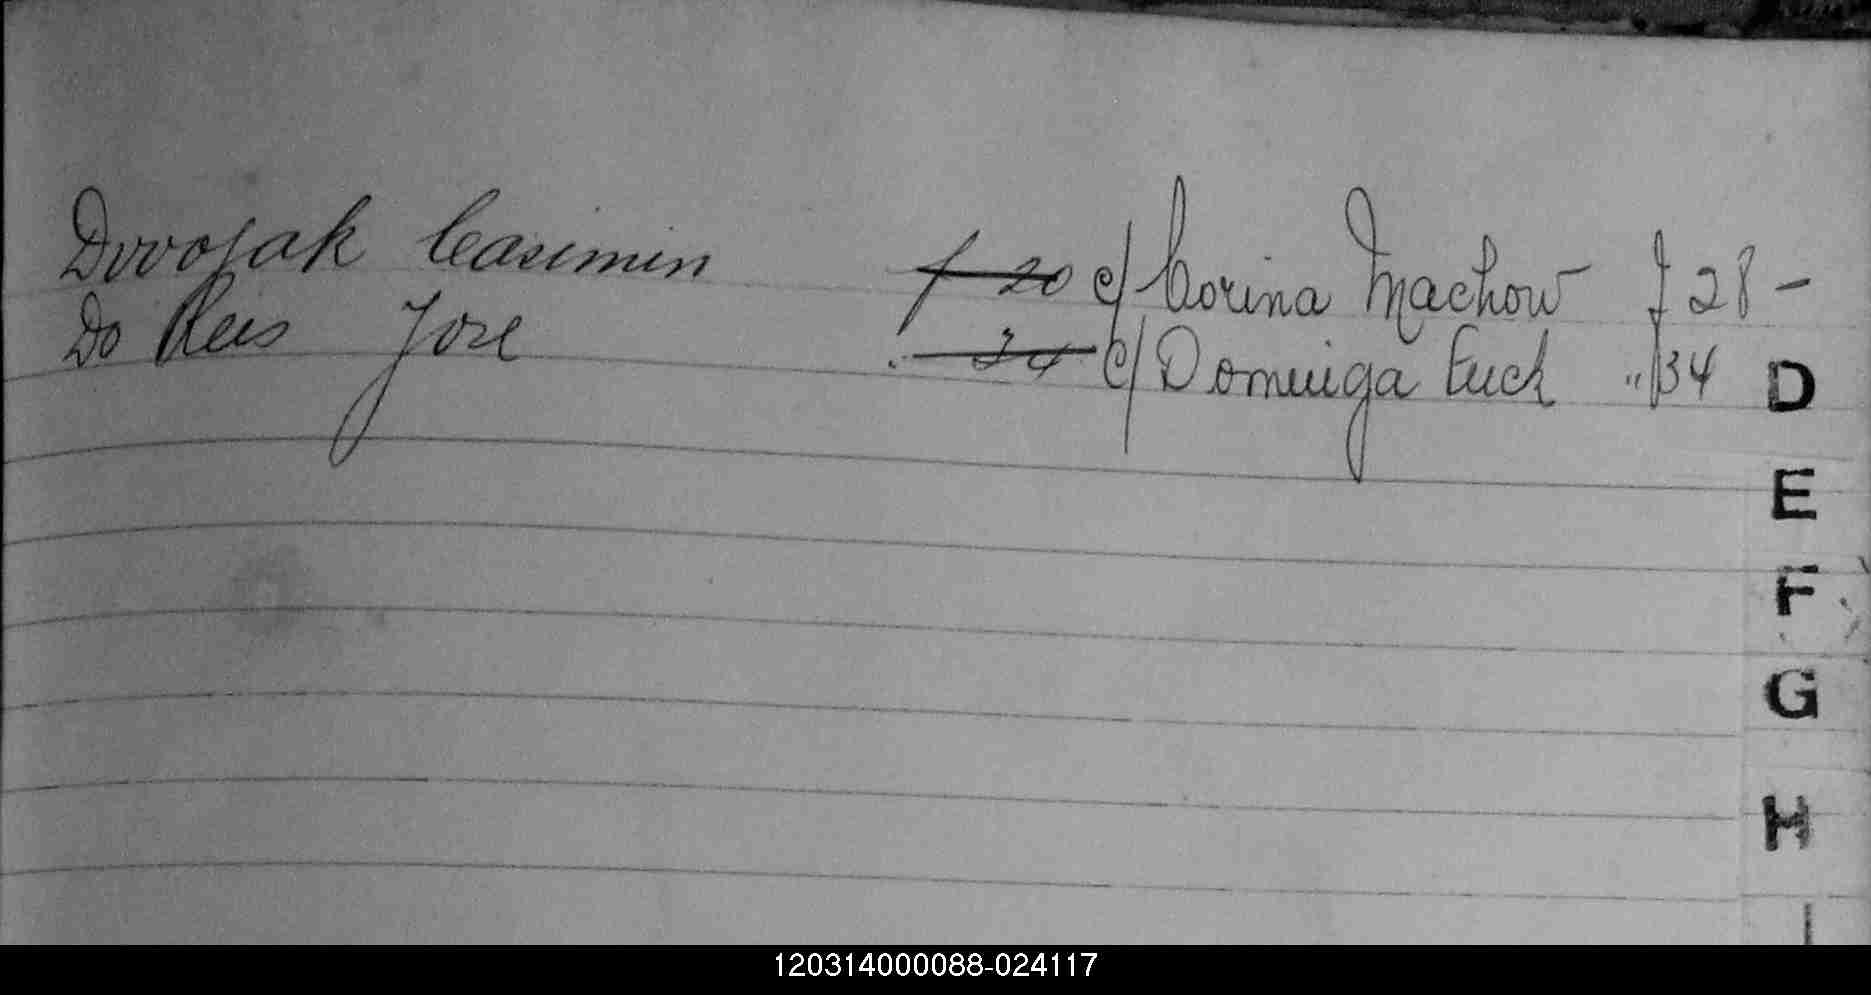 Dvvojak Casimin f 20 c/ Corina Machow f 28 -
Do Reis Jose . 34 c/ Dominiga Euch " f 34
D
E
F
G
H
I
120314000088-024117